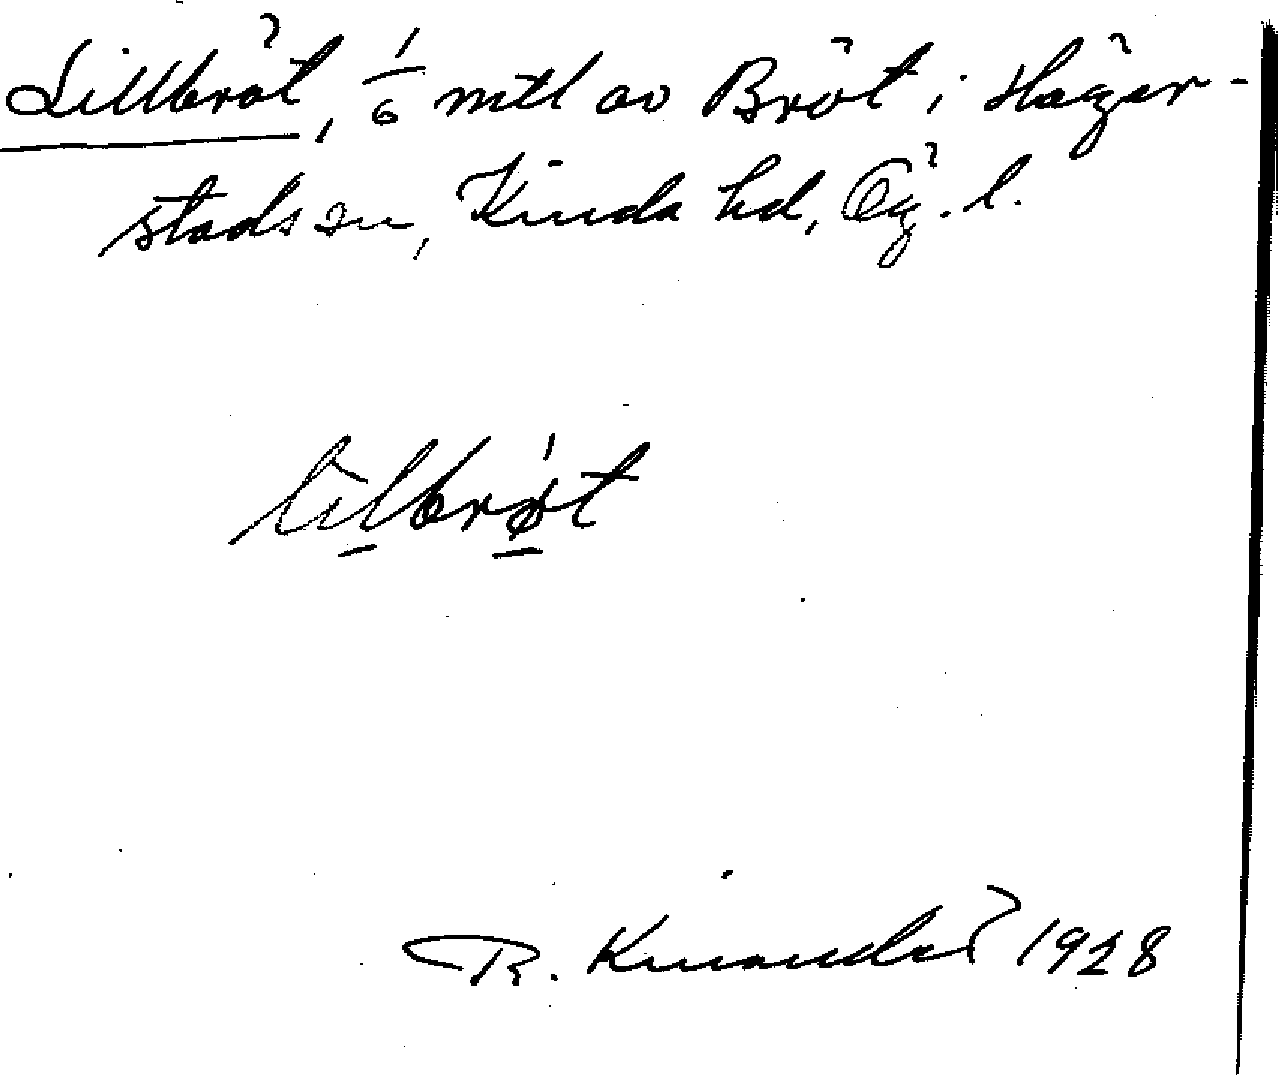 Lillbröt, 1/6 mtl av Bröt i Häger-
stads sn, Kinda hd, Ög. l.
lilbrø̀t
R. Kinander 1928